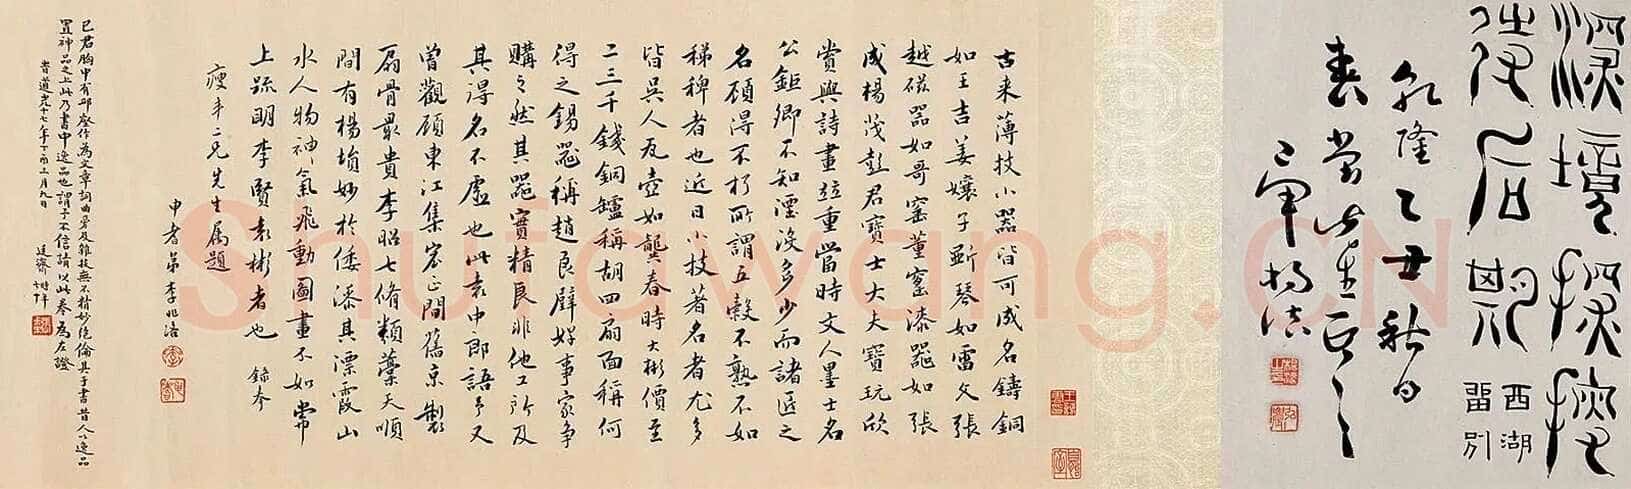 西湖
留別
乾隆乙丑秋日
楊法
古来薄技小器皆可成名鑄銅
如王吉姜孃子斲琴如雷文張
越磁器如哥窑董窑漆器如張
成楊茂彭君寶士大夫寶玩欣
賞與詩畫竝重當時文人墨士名
公鉅卿不知湮没多少而諸匠之
名顧得不朽所謂五穀不熟不如
稊稗者也近日小技著名者尤多
皆吳人瓦壺如龔春時大彬價至
二三千錢銅罏稱胡四扇面稱何
得之錫器稱趙良璧好事家争
購之然其器實精良非他工所及
其得名不虚也此袁中郎語予又
曾觀顧東江集宏正間舊京製
扇骨最貴李昭七脩類藁天順
間有楊塤妙於倭漆其漂霞山
水人物神氣飛動圖畫不如常
上疏明李賢袁彬者也 錄奉
瘦丰二兄先生属題
申耆弟李兆洛
君胸中有邱壑作為文章詞曲旁及雜技無不精妙絶倫其于書昔人以逸品
置神品之上此乃書中逸品也謂予不信請以此卷為左證
道光十七年丁酉三月九日
Shufawang.CN